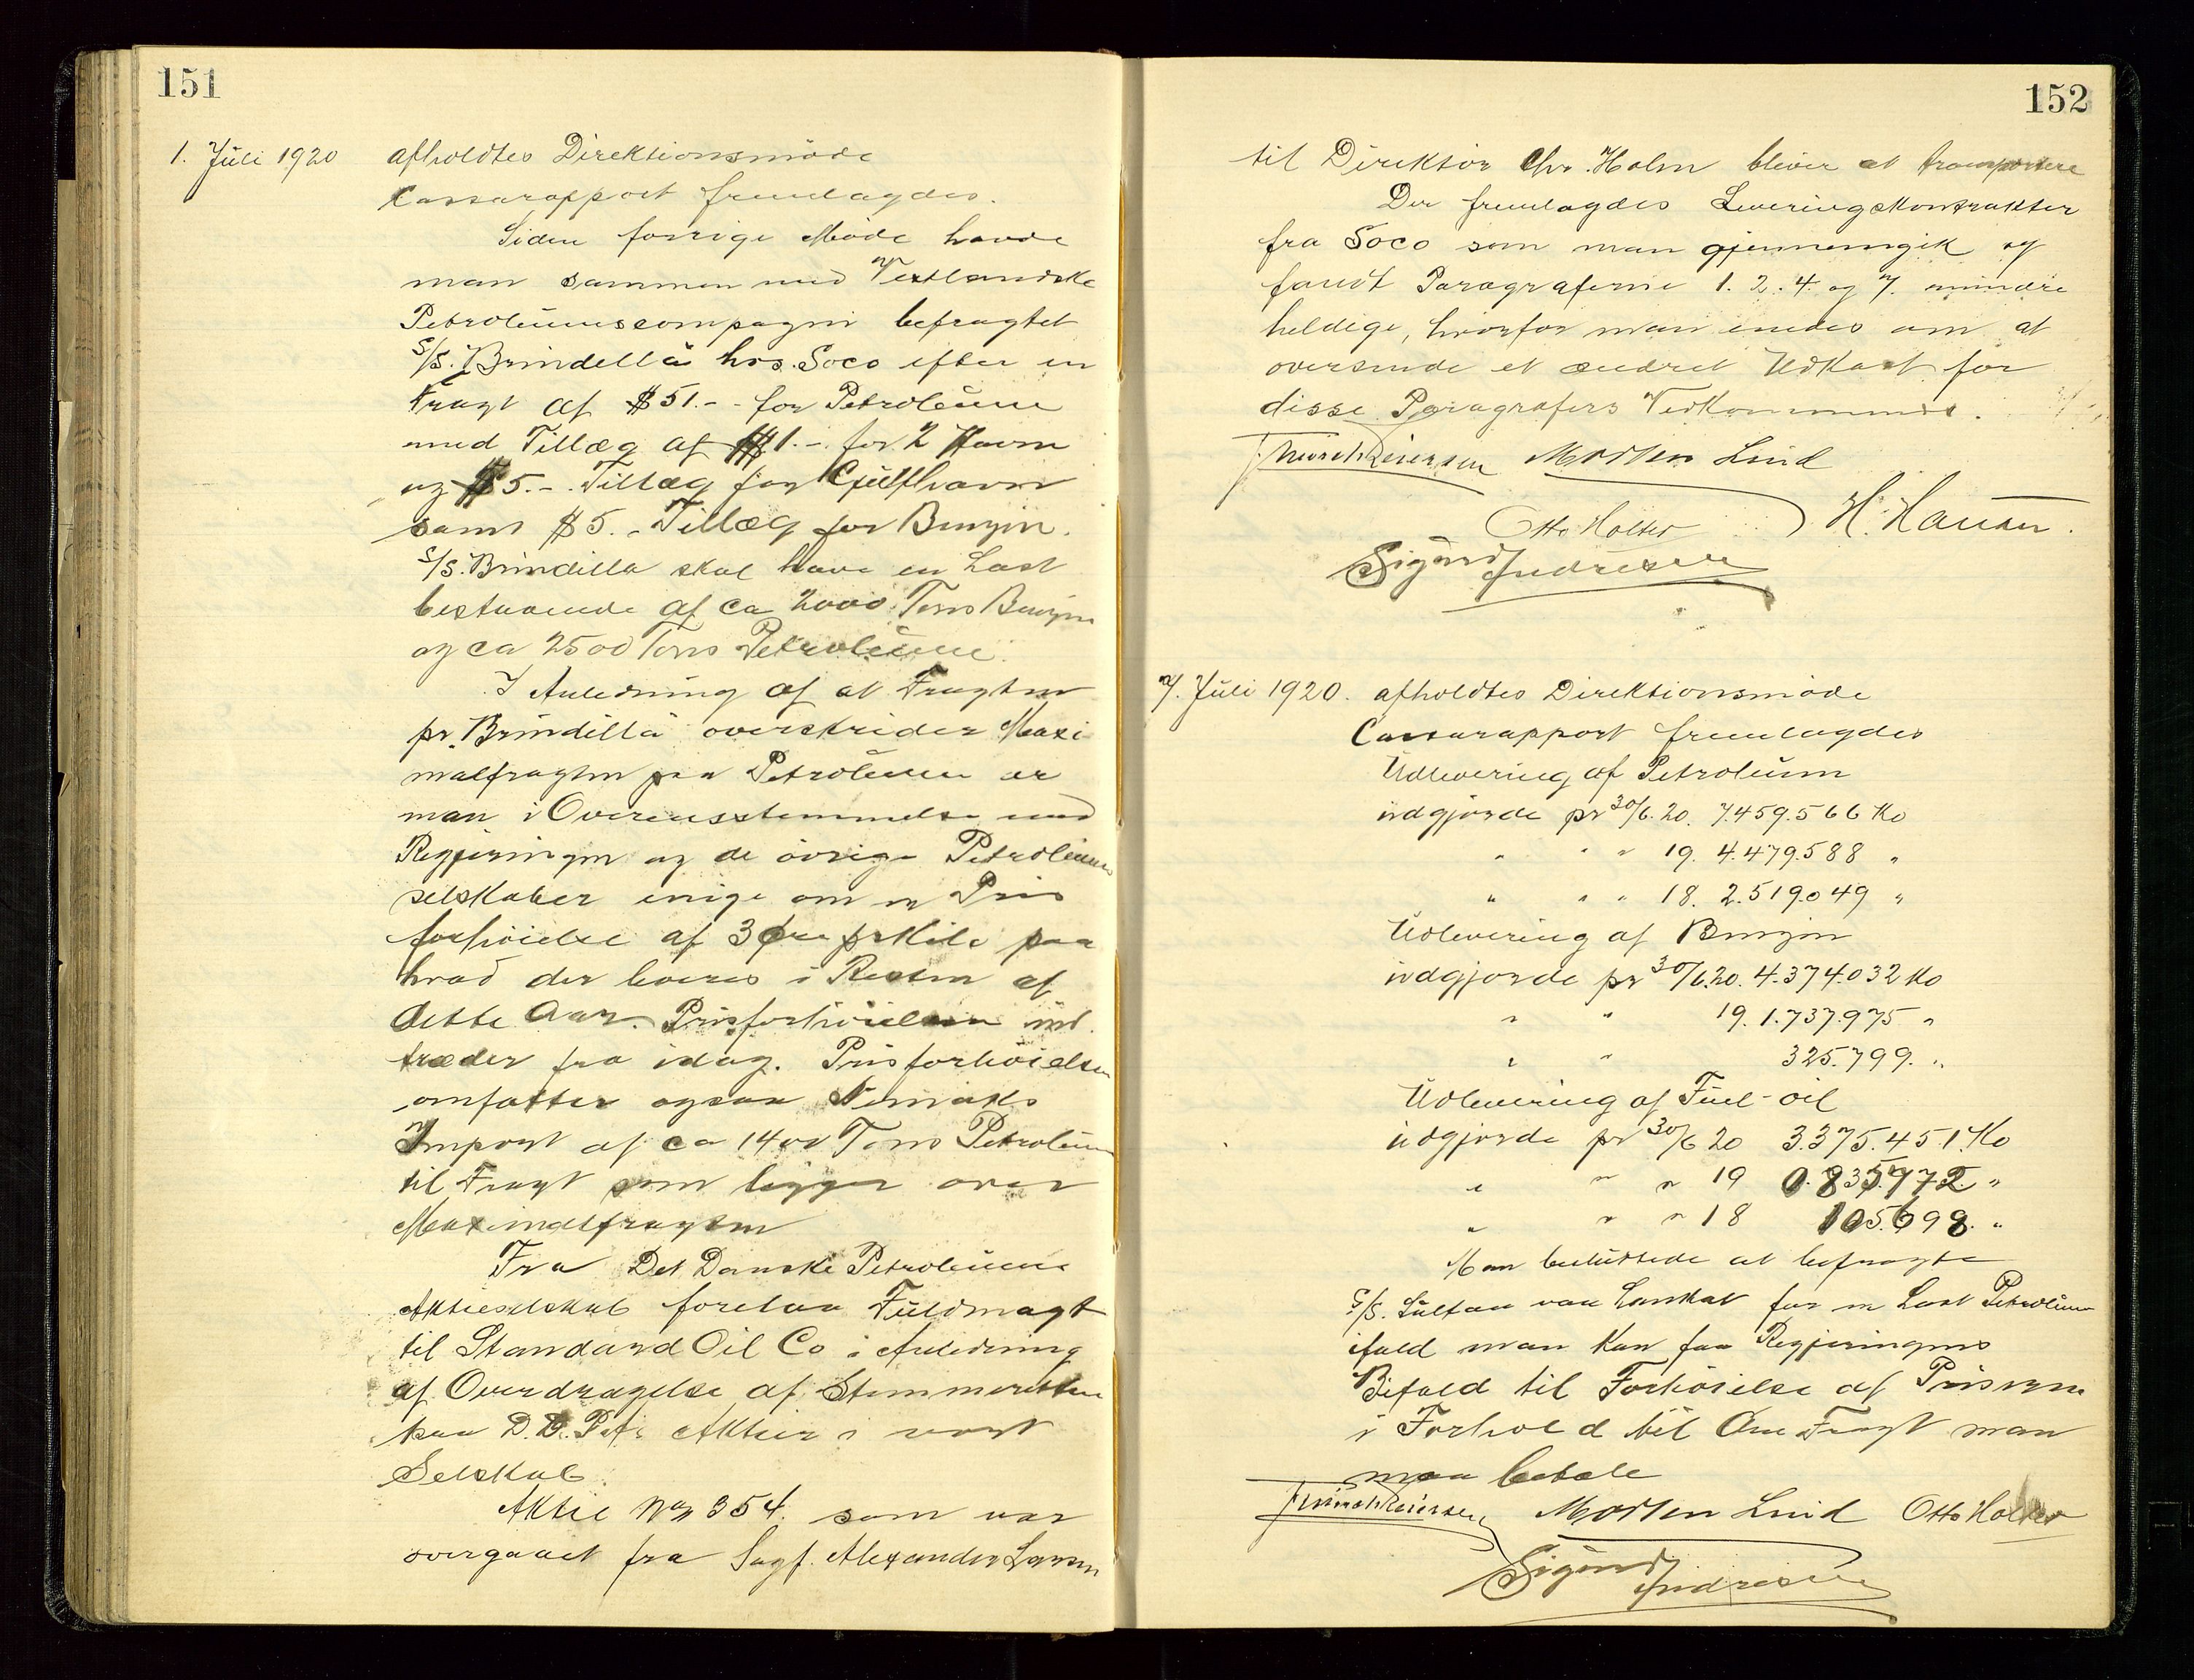 151
1. Juli 1920 afholdtes Direktionsmöde
Cassarapport fremlagdes.
Siden forrige Möde havde
man sammen med Vestlandske
Petroleumscompagni befragtet
S/S. "Brindilla" hos Soco efter en
Fragt af $51.- for Petroleum
med Tillæg af $1.- for 2 Havne
og $5.- Tillæg for Gulfhavn
samt $5.- Tillæg for Benzin.
S/S. Brindilla skal have en Last
bestaaende af ca 2000 Tons Benzin
og ca 2500 Tons Petroleum.
I Anledning af at Fragten
pr. "Brindilla" overskrider Maxi-
malfragten paa Petroleum er
man i Overensstemmelse med
Regjeringen og de övrige Petroleums
selskaber enige om en Pris
forhöielse af 3 Øre pr Kilo paa
hvad der leveres i Resten af
dette Aar. Prisforhöielsen ind-
træder fra idag. Prisforhöielsen
omfatter ogsaa
Import af ca 1400 Tons Petroleum
til Fragt som ligger over
Maximalfragten
Fra Det Danske Petroleums
Aktieselskab forelaa Fuldmagt
til Standard Oil Co i Anledning
af Overdragelse af Stemmeretten
paa D.D.P.A. Aktier i vort
Selskab.
Aktie No 354. som var
overgaaet fra Sagf. Alexander Larsen
152
til Direktör Chr. Holm bliver at transportere
Der fremlagdes Leveringskontrakter
fra Soco som man gjennemgik og
fandt Paragraferne 1. 2. 4. og 7. mindre
heldige, hvorfor man enedes om at
oversende et ændret Udkast for
disse Paragrafers Vedkommende.
Morten Lind
Otto Holter H. Hansen.
Sigurd Andresen
7. Juli 1920. afholdtes Direktionsmöde
Cassarapport fremlagdes
Udlevering af Petroleum
udgjorde pr 30/6.20. 7.459.566 Ko
" " " 19. 4.479.588 "
" " " 18. 2.519.049 "
Udlevering af Benzin
udgjorde pr 30/6.20. 4.374.032 Ko
" " 19. 1.737.975 "
" " 325.799. "
Udlevering af Fuel-oil
udgjorde pr 30/6 20 3.375.451. Ko
" " " 19 0.835.972. "
" " " 18 105.698. "
Man besluttede at befragte
S/S. Sultan van Lankat for en Last Petroleum
ifald man kan faa Regjeringens
Bifald til Forhöielse af Prisene
i Forhold til den Fragt man
maa betale
Morten Lind Otto Holter
Sigurd Andresen